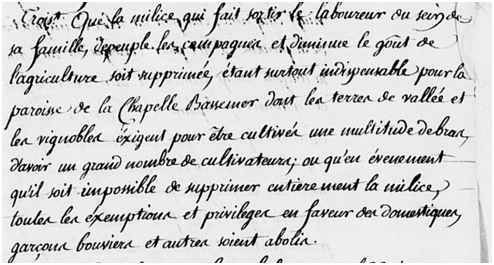 Troist. Que la milice qui fait sortir le laboureur du sein de
sa famille, depeuple les campagnes et diminue le goût de
l'agriculture soit supprimée, étant surtout indispensable pour la
paroise de la Chapelle Bassemer dont les terres de vallée et
les vignobles éxigent pour être cultivés une multitude de bras,
d'avoir un grand nombre de cultivateurs, ou qu'en évenement
qu'il soit impossible de supprimer entièrement la milice,
toutes les exemptions et privileges en faveur des domestiques,
garçons bouviers et autres soient abolis.